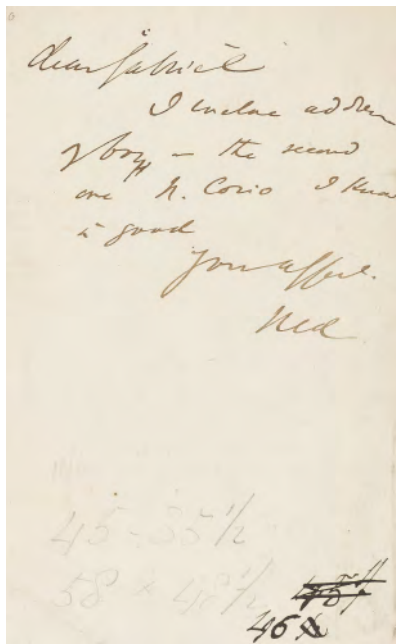 dear Gabriel
I enclose address
of boy — the second
one N. Corio I know
is good
Your affte.
Ned
45 - 35 1/2
58 x 48 1/2
46